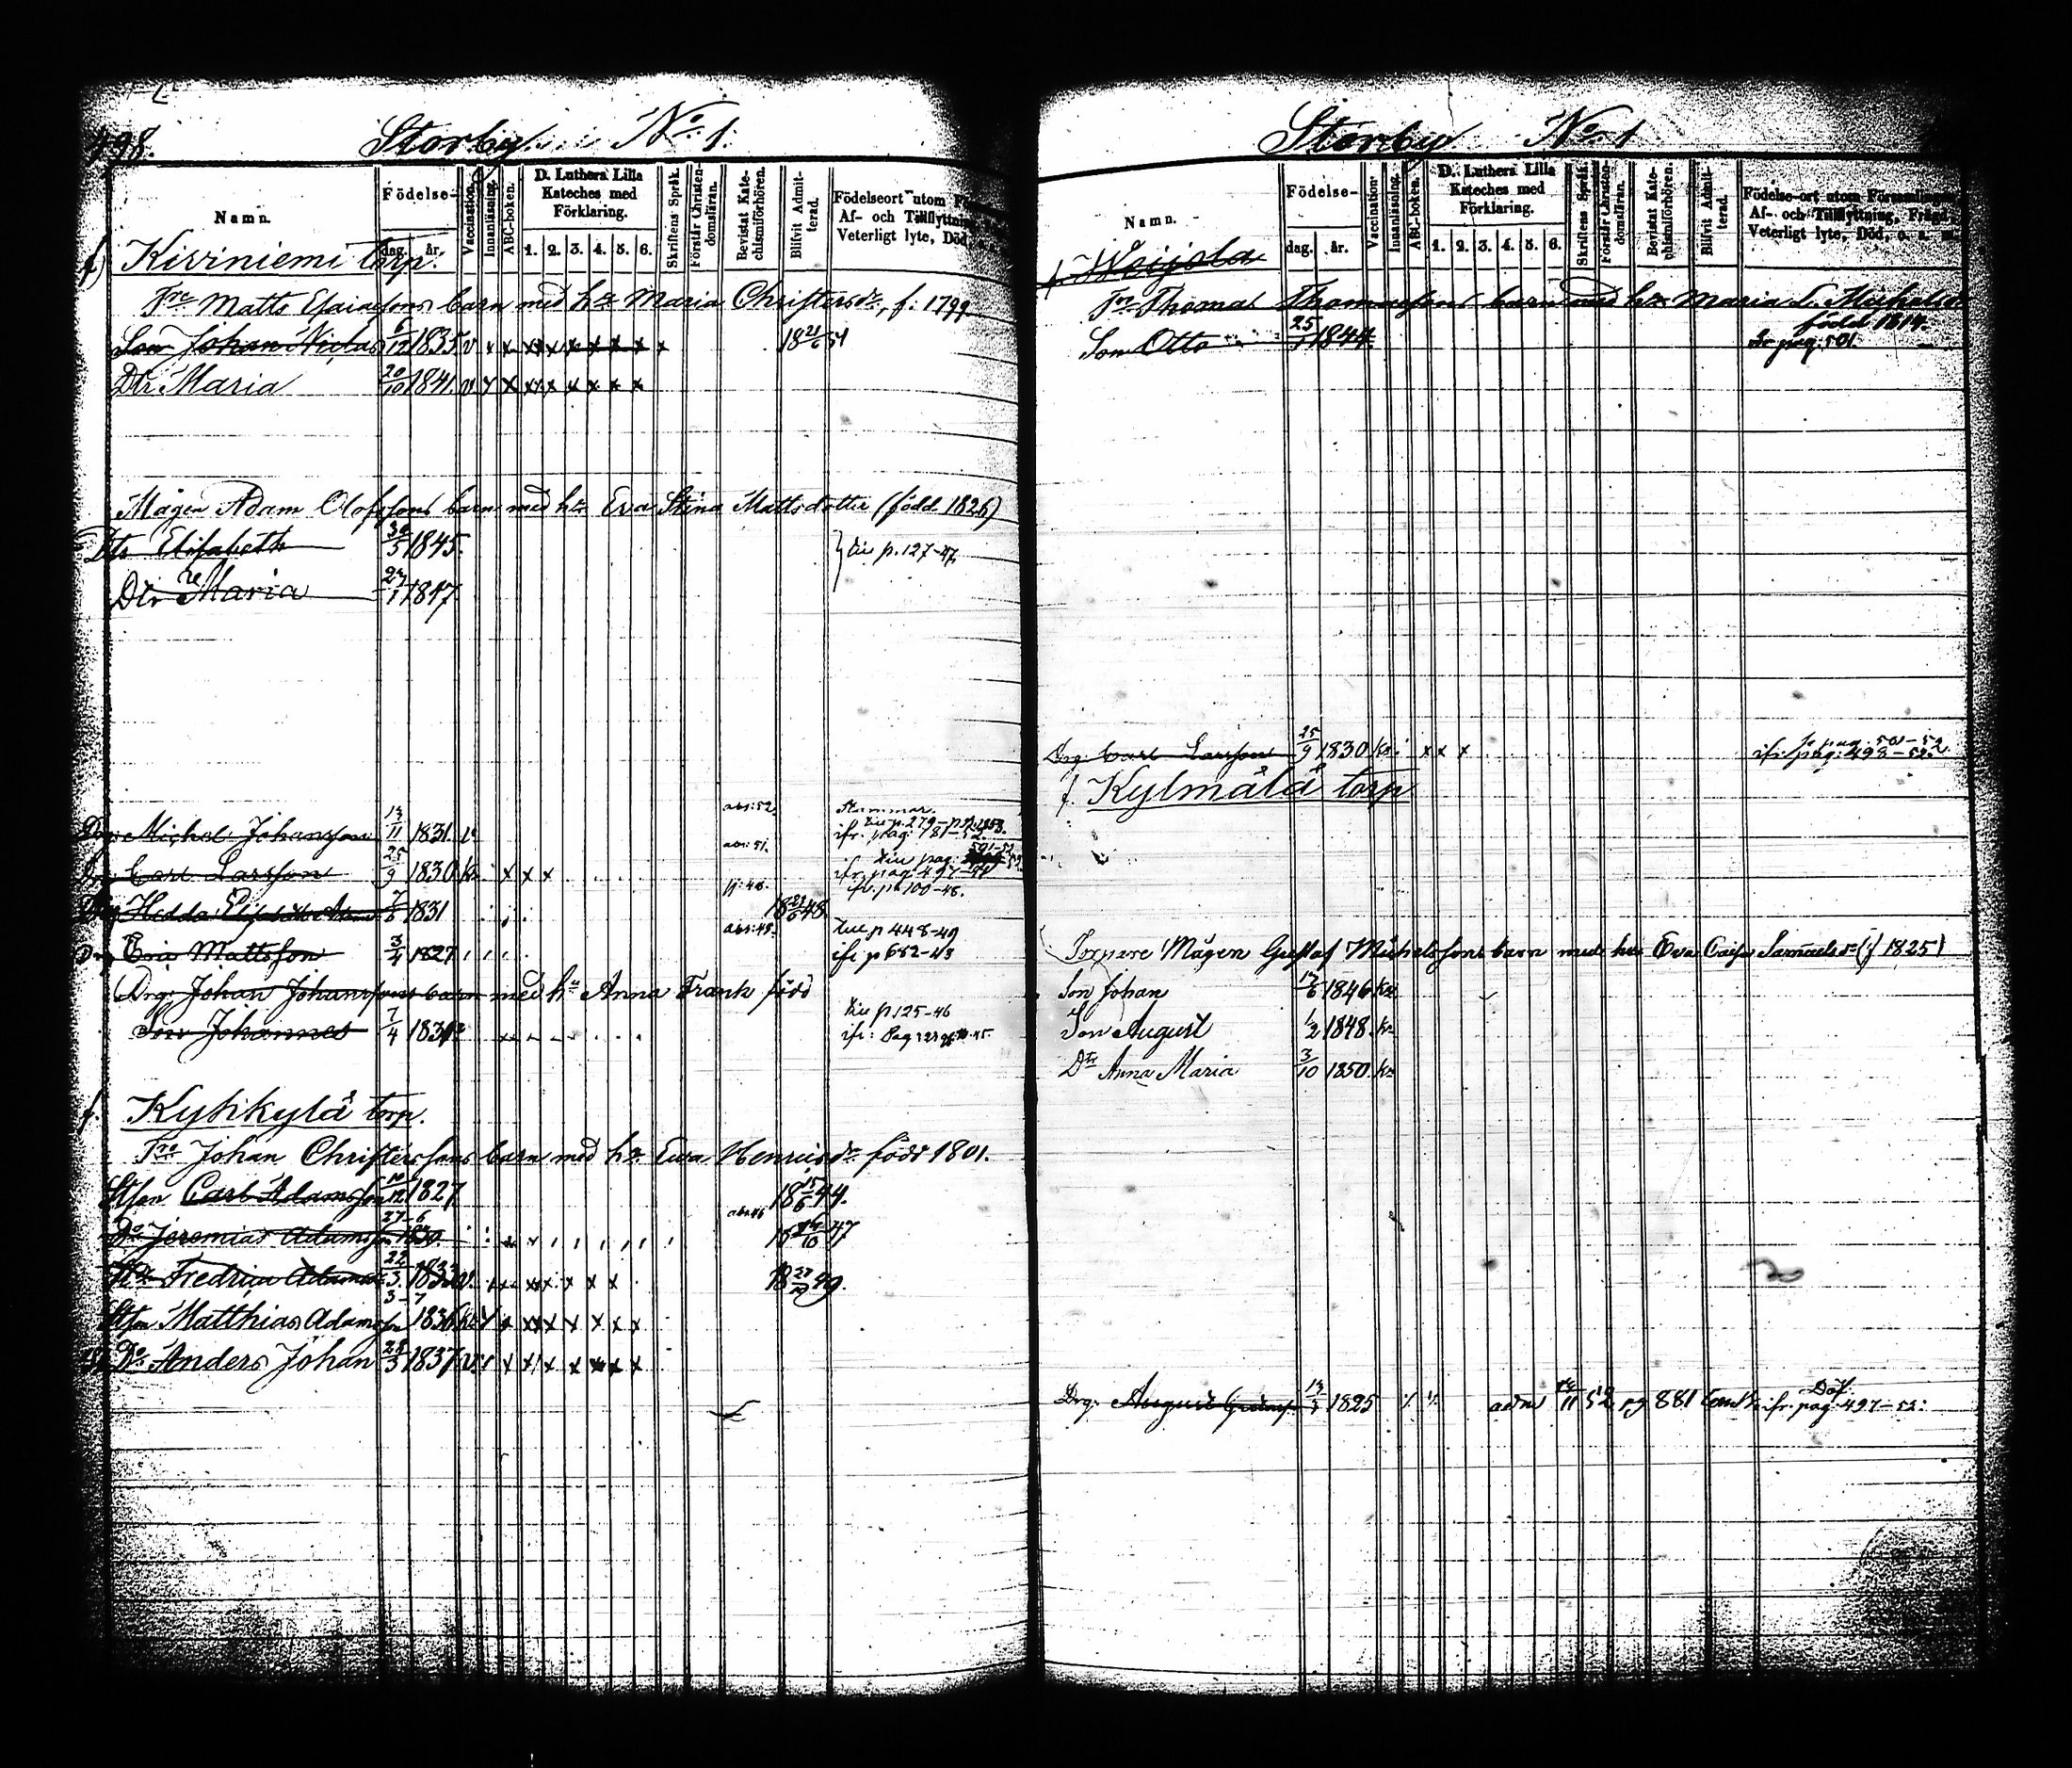 498.
Storby No 1.
Namn.
Födelse-
dag. år.
Vaccination.
Innanläsning.
ABC-boken.
D. Luthers Lilla Kateches med Förklaring.
1. 2. 3. 4. 5. 6.
Skriftens Språk.
Förstår Christendomsläran.
Bevistat Katechismiförhören.
Blifvit Admitterad.
Födelseort utom
Af- och Tillflyttning
Veterligt lyte, Död,
f) Kiviniemi torp.
Matts Esaiassons barn med h. Maria Christersdr, f: 1799
Son Johan Niclas 6/12 1835 v 18 21/6 54
Dtr Maria 20/10 1841 v
Mågen Adam Olofssons barn med h. Eva Stina Mattsdotter (född 1826)
Dtr Elisabeth 30/5 1845. p. 127-47
Dtr Maria 1847
abs: 52. Stammar.
Drg: Michel Johansson 13/11 1831. v p. 279
ifr. pag: 781-52
abs: 51.
Drg Carl Larsson 25/9 1830 pag: 501-52
ifr. pag 497
ifr. p 100-48.
Hedda Elisabeth 1831 48
abs: 49. p 448-49
Mattsson 3/4 1827 ifr p 652-43
Drg: Johan Johanssons barn med h. Anna Frank född
p 125-46
Son Johannes 7/4 1831 ifr: Pag
f. Kytikylä torp.
Johan Christerssons barn med h. Eva Henricsdr född 1801.
Stfson Carl Adamsson 10/12 1827 18 15/6 44.
abs. 46
Do Jeremias Adamsson 27-6 1830. 18 10 47
Fredrica Adams 22/3 1833 v. 18 49.
Stfson Matthias Adamsson 3-7 1836
Do Anders Johan 28/3 1837
Storby No 1
Namn.
Födelse-
dag. år.
Vaccination.
Innanläsning.
ABC-boken.
D. Luthers Lilla Kateches med Förklaring.
1. 2. 3. 4. 5. 6.
Skriftens Språk.
Förstår Christendomsläran.
Bevistat Katechismiförhören.
Blifvit Admitterad.
Födelse-ort utom Församlingen,
Af- och Tillflyttning, Frägd,
Veterligt lyte, Död, o. s.
f. Weijola
Thomas Thomassons barn med h. Maria L. Michelsd
född 1814.
Son Otto 25 1844 pag: 501.
Drg. Carl Larsson 25/9 1830 pag. 501-52
ifr: pag: 498-52
f. Kylmälä torp
Torpare Mågen Gustaf Michelssons barn med h. Eva Caisa Samuelsdr (f 1825)
Son Johan 17/6 1846
Son August 1/2 1848.
Dtr Anna Maria 3/10 1850.
Drg. August 1825 11 52 pg 881 Död.
ifr. pag 497-52: